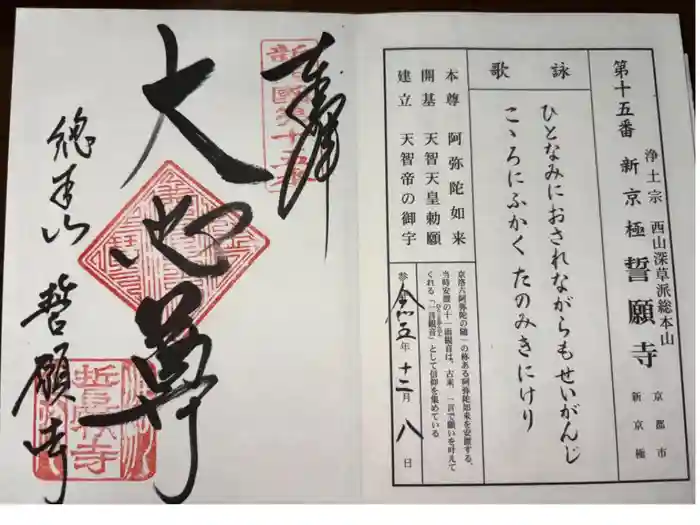 第十五番 新京極 誓願寺
浄土宗 西山深草派総本山
京都市
新京極
詠歌
ひとなみにおされながらもせいがんじ
こゝろにふかく たのみきにけり
本尊 阿弥陀如来
開基 天智天皇勅願
建立 天智帝の御宇
京洛六阿弥陀の随一の称ある阿弥陀如来を安置する。
当時安置の十一面観音は、古来、一言で願いを叶えて
くれる「一言観音」として信仰を集めている
参 令和五年 十二月 八日
奉拝
大悲尊
總本山 誓願寺
誓願寺